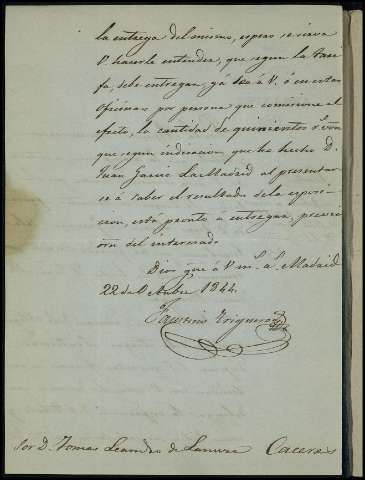 la entrega del mismo, espero se sirva
V. hacerle entender, que segun la tari-
fa, debe entregar, ya sea á V. ó en estas
Oficinas por persona que comisione al
efecto, la cantidad de quinientos r.s von
que segun indicacion que ha hecho D.
Juan Garcia La Madrid al presentar-
se á saber el resultado de la esposi-
cion, está pronto á entregar,
del interesado
Dios gue á V. m.s a.s Madrid
22 de Octubre 1844.
Faustino Trigueros
Sor D. Tomas Leandro de Caceres